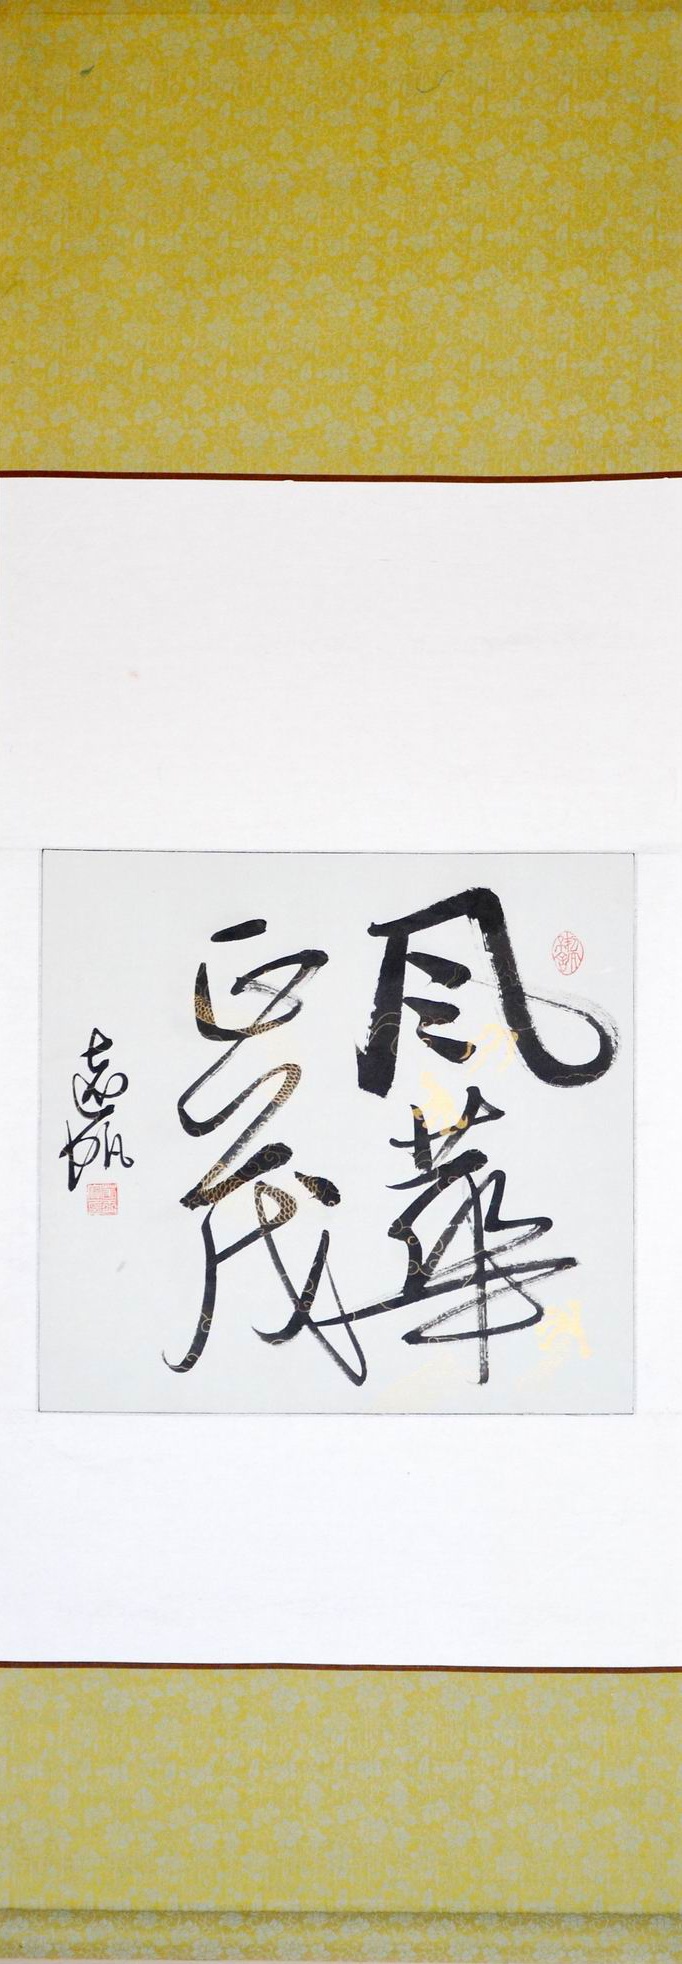 風華
正茂
志帆